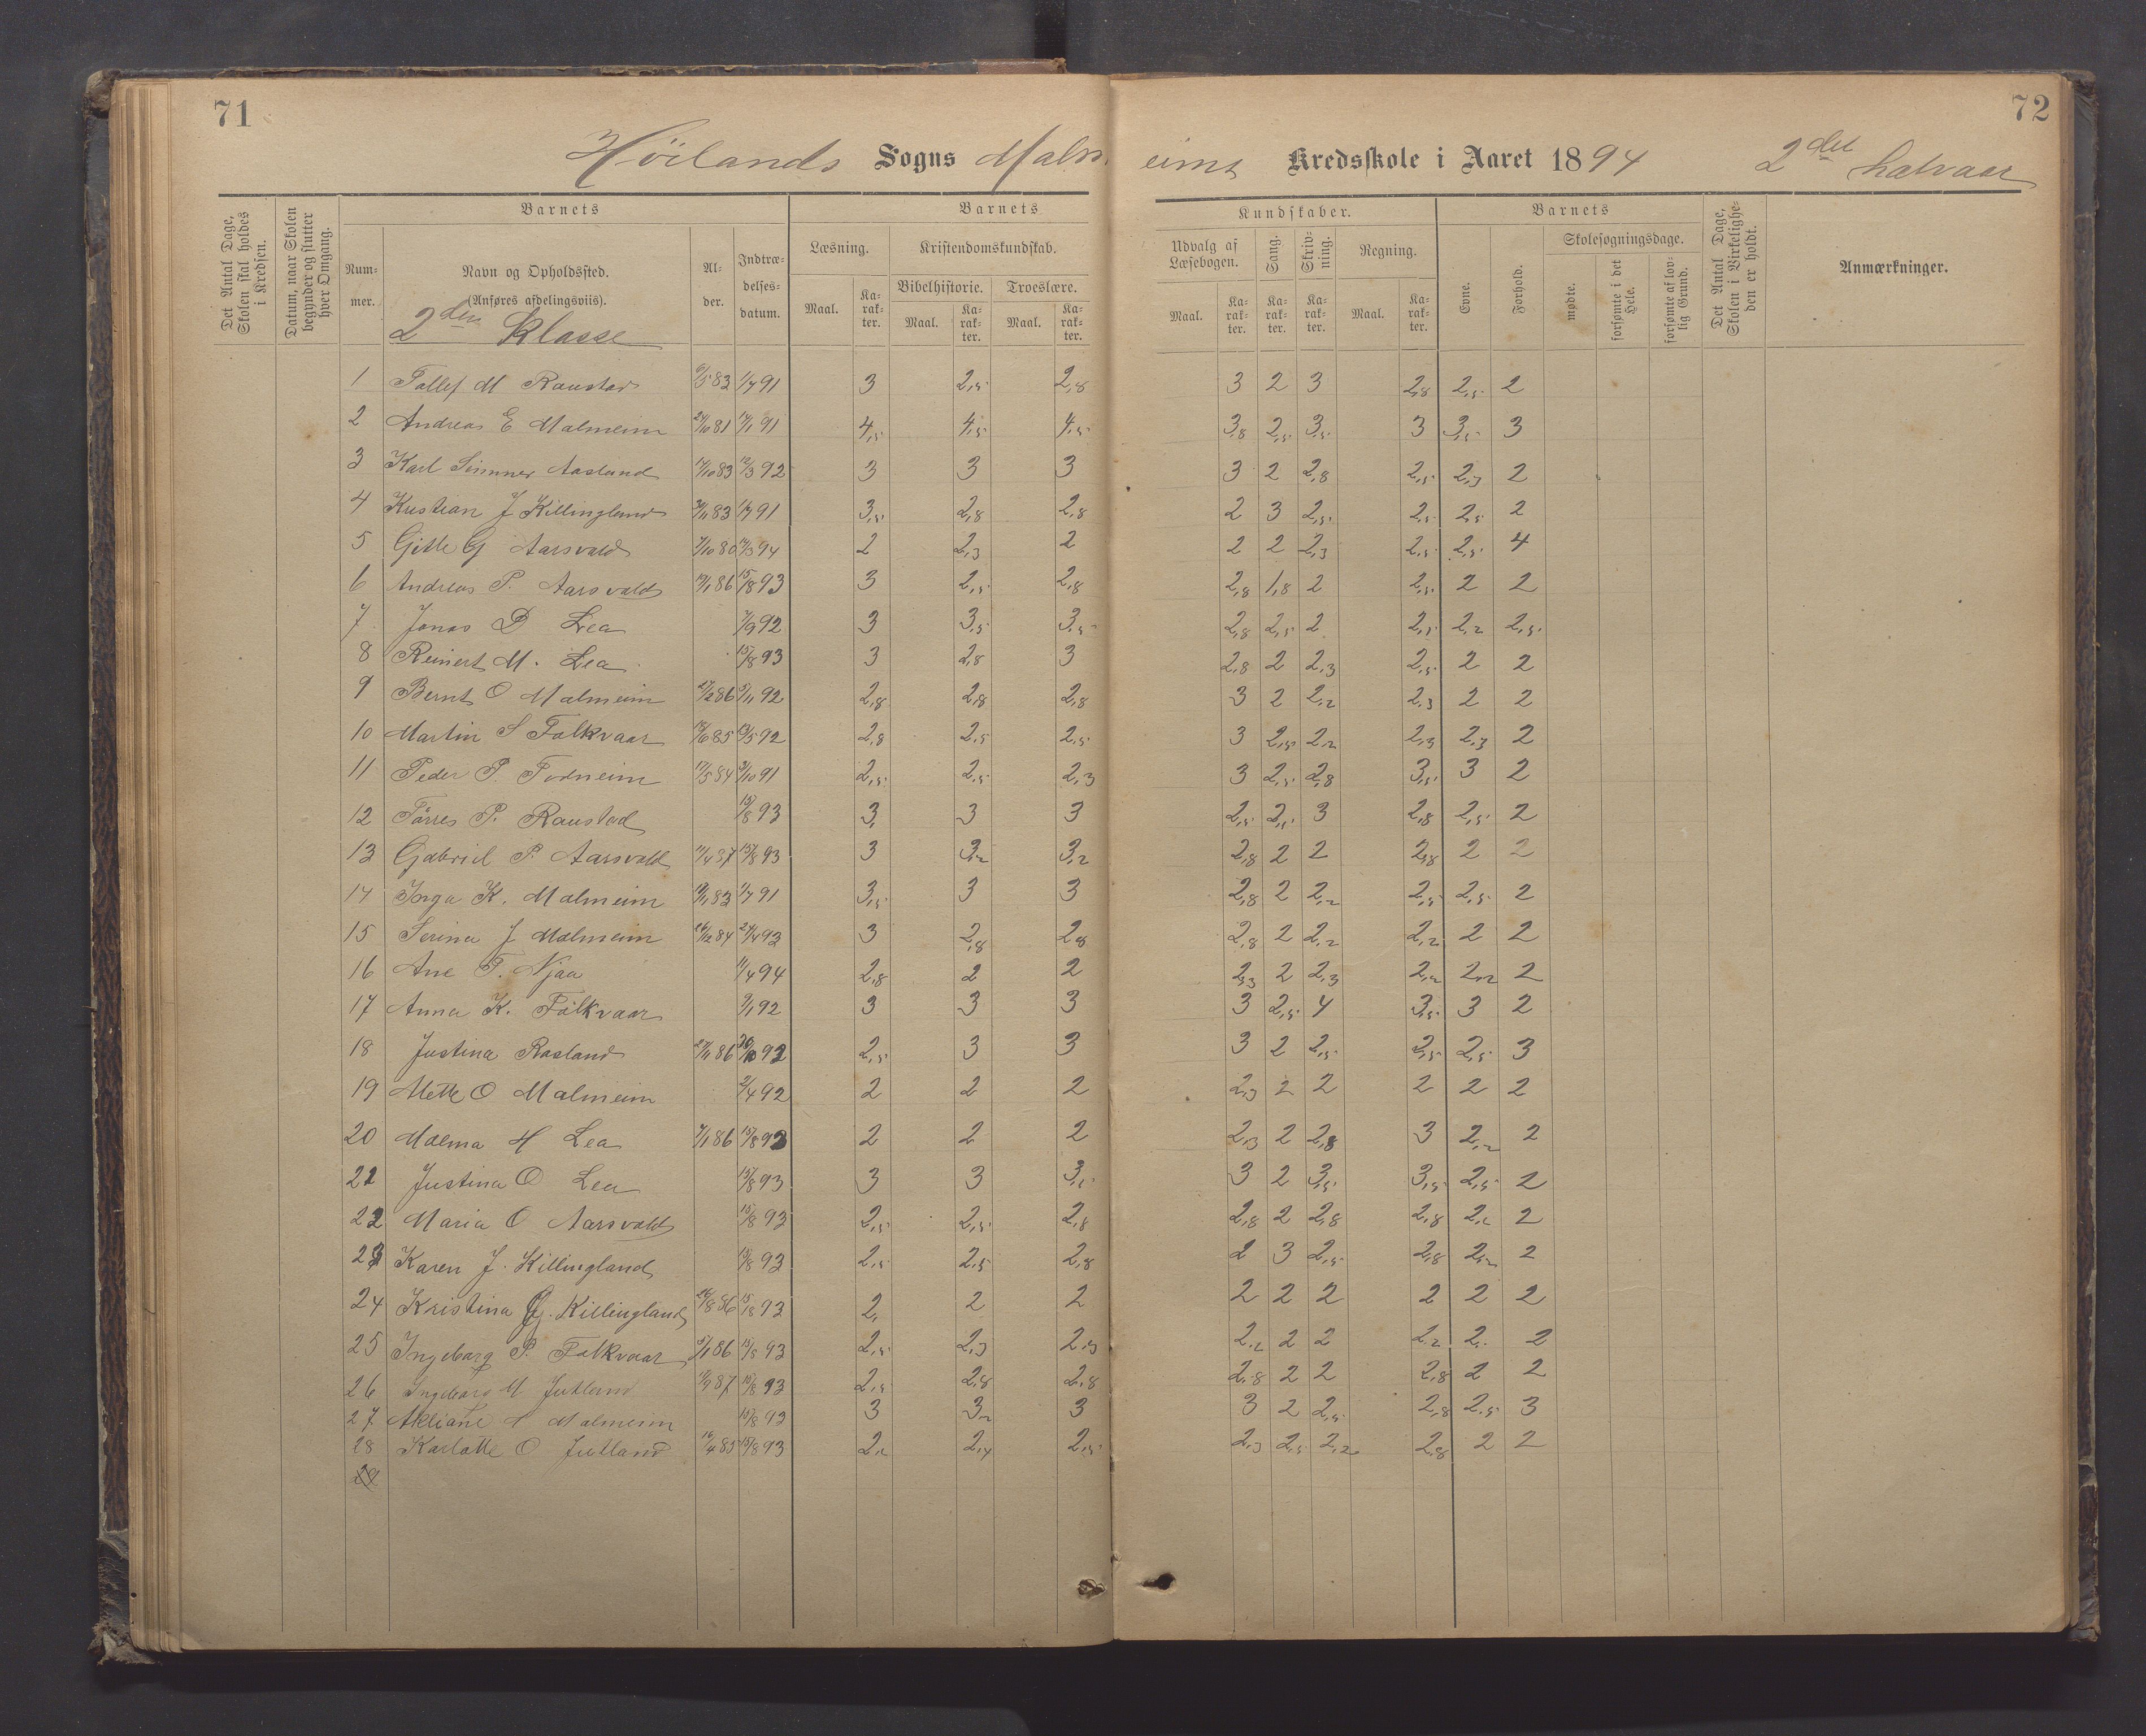 71
72
Höilands Sogns Malm eims Kredsskole i Aaret 1894 2det halvaar
Det Antal Dage, Skolen skal holdes i Kredsen.
Datum, naar Skolen begynder og slutter hver Omgang.
Barnets
Barnets
Kundskaber.
Barnets
Det Antal Dage, Skolen i Virkeligheden er holdt.
Anmærkninger.
Nummer.
Navn og Opholdssted. (Anføres afdelingsviis).
Alder.
Indtrædelsesdatum.
Læsning.
Kristendomskundskab.
Bibelhistorie.
Troeslære.
Udvalg af Læsebogen.
Sang.
Skrivning.
Regning.
Evne.
Forhold.
Skolesøgningsdage.
mødte.
forsømte i det Hele.
forsømte af lovlig Grund.
Maal. Karakter. Maal. Karakter. Maal. Karakter. Maal. Karakter. Karakter. Karakter. Maal. Karakter.
2den Klasse
1 Tollef M Raustad 83 1/7 91 3 2,5 2,8 3 2 3 2,8 2,5 2
2 Andreas E Malmeim 24/10 81 91 4,5 4,5 4,5 3,8 2,5 3,5 3 3,5 3
3 Karl Simmer Aasland 83 12/3 92 3 3 3 3 2 2,8 2,5 2,3 2
4 Kristian J Killingland 83 1/7 91 3,5 2,8 2,8 2 3 2,5 2,5 2,5 2
5 Gitle G Aarsvold 7/10 80 94 2 2,3 2 2 2 2,3 2,5 2,5 4
6 Andreas P. Aarsvold 86 15/8 93 3 2,5 2,8 2,8 1,8 2 2,5 2 2
7 Jonas D Lea 92 3 3,5 3,5 2,8 2,5 2 2,5 2,2 2,5
8 Reinert M. Lea 15/8 93 3 2,8 3 2,8 2 2,3 2,5 2 2
9 Bernt O Malmeim 86 92 2,8 2,8 2,8 3 2 2,2 2,3 2 2
10 Martin S Folkvaar 85 92 2,8 2,5 2,5 3 2,5 2,2 2,3 2,3 2
11 Peder P. Forneim 17/5 84 91 2,5 2,5 2,3 3 2,5 2,8 3,5 3 2
12 Törres P. Raustad 15/8 93 3, 3 3 2,5 2,5 3 2,8 2,5 2
13 Gabriel P. Aarsvold 87 15/8 93 3 3,2 3,2 2,8 2 2 2,8 2 2
14 Inga K. Malmeim 83 1/7 91 3,5 3 3 2,8 2 2,2 2,5 2,5 2
15 Serina J Malmeim 84 93 3 2,8 2,8 2,8 2 2,2 2,2 2 2
16 Ane T. Njaa 11/4 94 2,8 2 2 2,3 2 2,3 2,2 2,2 2
17 Anna K. Folkvaar 92 3 3 3 3 2,5 4 3,5 3 2
18 Justina Rasland 86 92 2,5 3 3 3 2 2,5 2,5 2,5 3
19 Mette O Malmeim 2/4 92 2 2 2 2,3 2 2 2 2 2
20 Malena H Lea 86 15/8 93 2 2 2 2,3 2 2,8 3 2,2 2
21 Justina O Lea 15/8 93 3 3 3,5 3 2 3,5 3,5 2,5 2
22 Maria O Aarsvold 15/8 93 2,5 2,5 2,8 2,8 2 2,8 2,8 2,2 2
23 Karen J. Killingland 15/8 93 2,5 2,5 2,8 2 3 2,5 2,8 2,2 2
24 Kristina G. Killingland 86 15/8 93 2, 2 2 2 2 2 2 2 2
25 Ingeborg P. Folkvaar 86 15/8 93 2,5 2,3 2,3 2,2 2 2 2,2 2, 2
26 Ingeborg M Jutland 87 15/8 93 2,5 2,8 2,8 2,8 2 2 2,8 2 2
27 Malmeim 15/8 93 3 3,2 3 3 2 2,5 2,8 2,5 3
28 Karlotte O Jutland 16/4 85 15/8 93 2,2 2,4 2,5 2,3 2,5 2,2 2,8 2 2